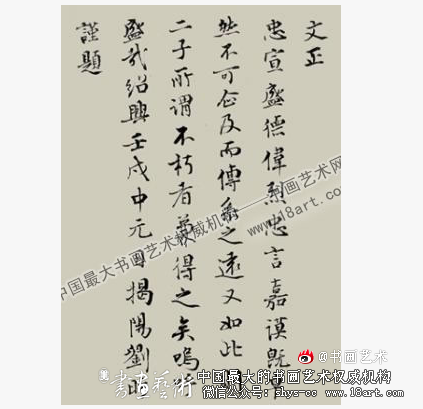 文正
忠宣盛德偉烈忠言嘉謨既卓
然不可企及而傳系之遠又如此
二子所謂不朽者兼得之矣嗚呼
盛哉紹興壬戌中元日揭陽劉昉
謹題
中国最大书画艺术权威机构——书画艺术网
www.18art.com
@书画艺术
書畫藝術
中国最大的书画艺术权威机构
微信公众号: shys-cc www.18art.com